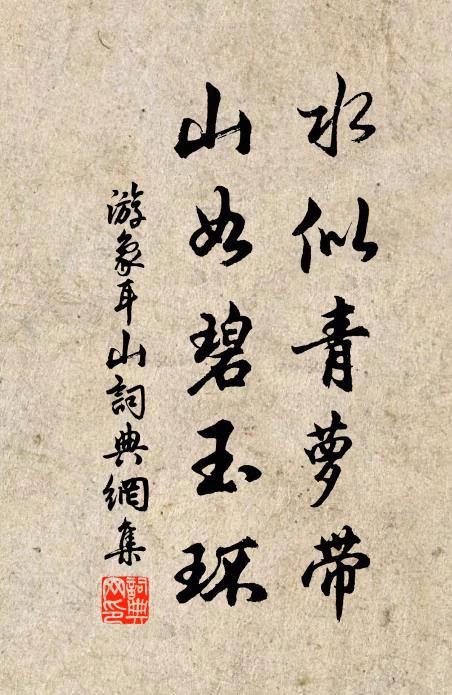 水似青萝带
山如碧玉环
游象耳山詞典網集
詞典
网印